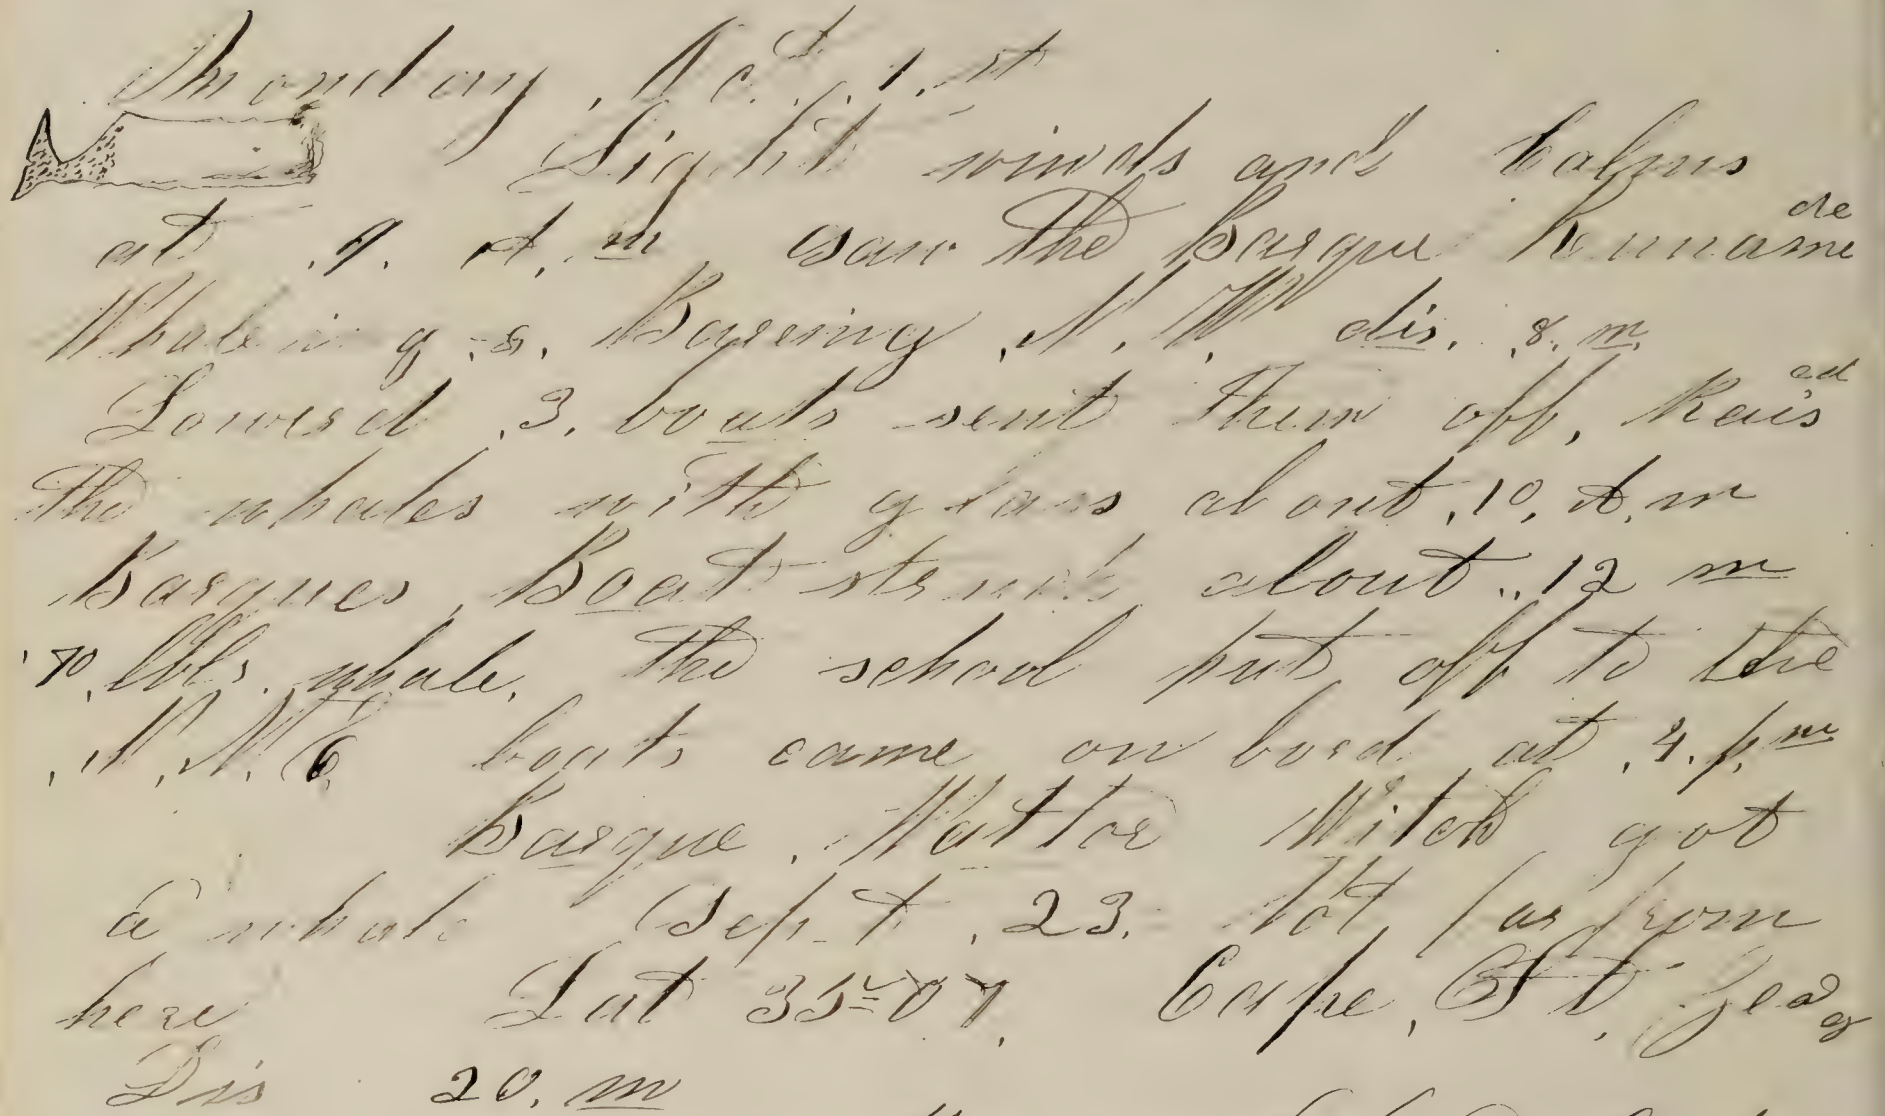 Monday, Oct, 1, st
Light winds and Calms
at 9. A. m saw the Barque
Whaleing - Bareing N. W. dis. 8. m.
Lowerd 3. boats sent them off, Raised
the whales with glass about 10, A. m
Barques Boat struck about 12 m
70, bbls. whale. the school put off to the
N. N. E boats came on bord at 4. p. m
Barque, Watter Witch got
a whale Sept, 23. Not far from
here Lat 35=07, Cape,
Dis 20. m